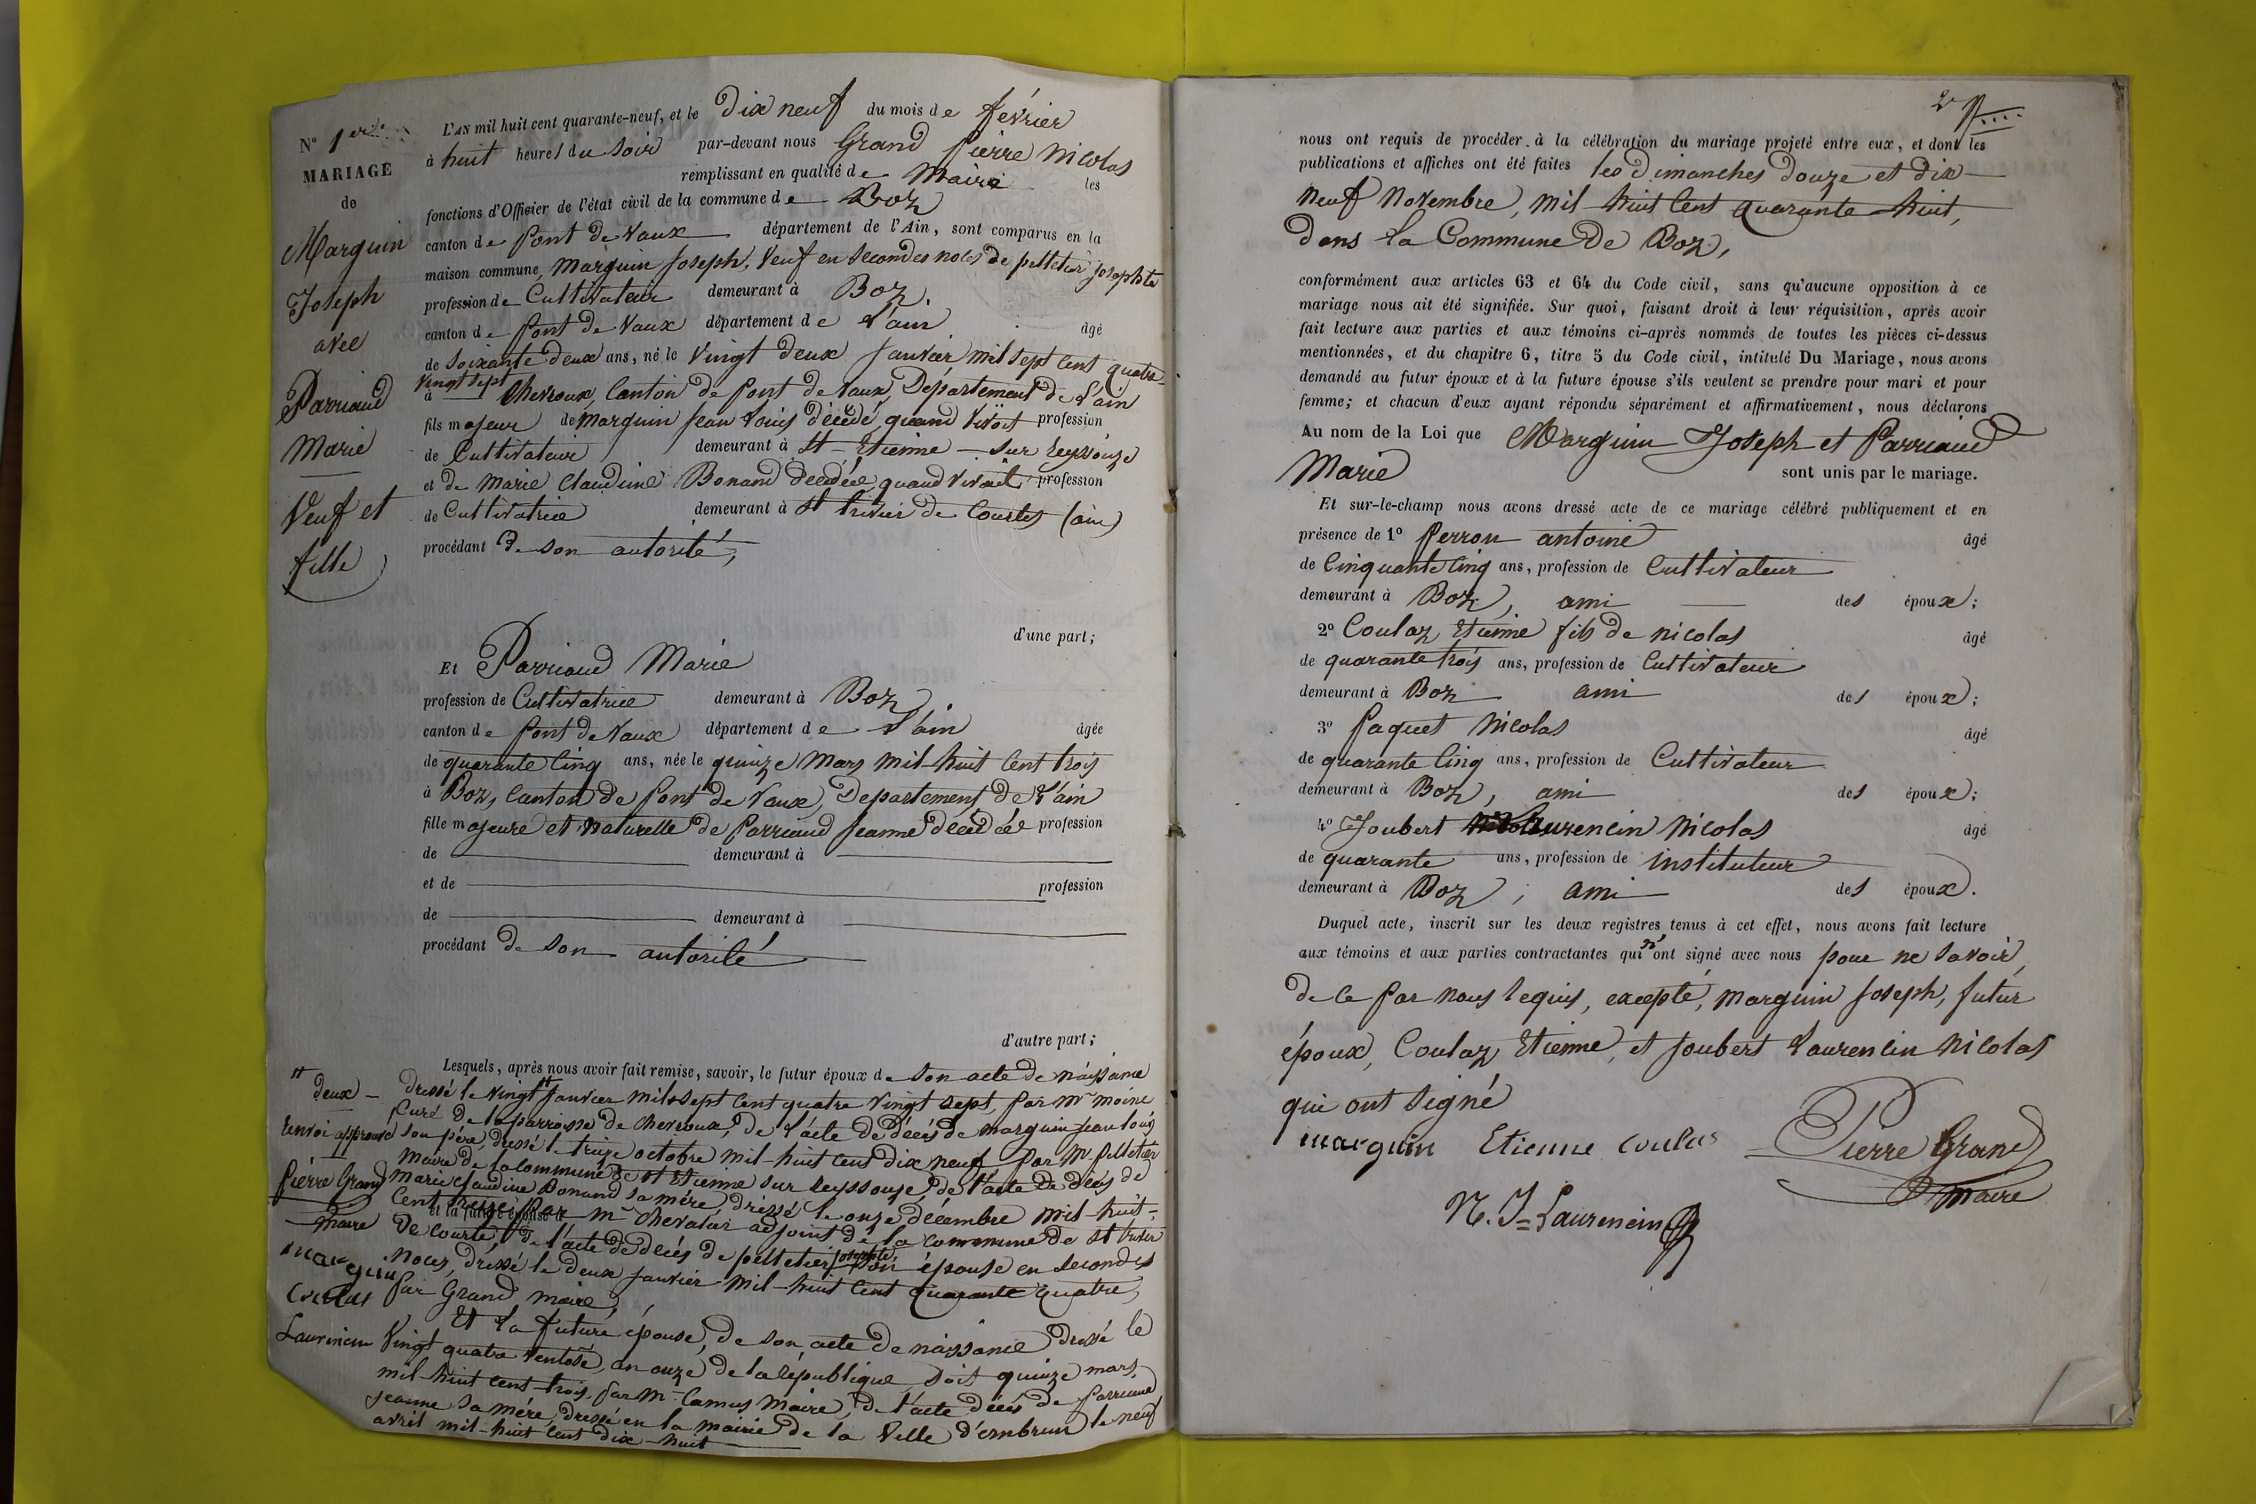 N° 1er
MARIAGE
de
Marguin
Joseph
avec
Parriaud
Marie
Veuf et
fille
L'AN mil huit cent quarante-neuf, et le dix neuf du mois de février
à huit heures du soir par-devant nous Grand Pierre Nicolas
remplissant en qualité de Maire les
fonctions d'Officier de l'état civil de la commune de Boz
canton de Pont de Vaux département de l'Ain, sont comparus en la
maison commune, Marguin Joseph, Veuf en secondes noces de pelletier josephte
profession de Cultivateur demeurant à Boz,
canton de Pont de Vaux département de l'ain âgé
de soixante deux ans, né le vingt deux Janvier mil sept cent quatre-
vingt sept
à Chevroux, Canton de Pont de Vaux, Département de l'ain
fils majeur de Marguin Jean Louis décédé, quand vivoit profession
de Cultivateur demeurant à St - Etienne - sur Reyssouze
et de Marie Claudine Bonand décédée, quand vivait profession
de Cultivatrice demeurant à St trivier de Courtes (ain)
procédant de son autorité,
d'une part;
Et Parriaud Marie
profession de Cultivatrice demeurant à Boz,
canton de Pont de Vaux département de l'ain âgée
de quarante cinq ans, née le quinze Mars mil huit cent trois
à Boz, Canton de Pont de Vaux, Département de l'ain
fille majeure et naturelle de Parriaud Jeanne décédée profession
de demeurant à
et de profession
de demeurant à
procédant de son autorité
d'autre part;
Lesquels, après nous avoir fait remise, savoir, le futur époux de son acte de naissance
dressé le vingt # janvier mil sept cent quatre vingt sept, par Mr moine
Curé de la parroisse de Chevroux, de l'acte de décès de Marguin jean louis
son père, dressé le treize octobre mil-huit cent dix neuf par Mr Pelletier
Maire de la commune de St Etienne sur Reyssouze, de l'acte de décès de
Marie Claudine Bonand sa mère, dressé le onze décembre mil-huit-
cent treize par Mr Chevalier adjoint de la commune de St trivier
et la future épouse d
de courte, de l'acte de décès de pelletier josephte son épouse en secondes
Noces, dressé le deux janvier mil-huit cent quarante quatre,
par Grand maire,
Et la future épouse, de son acte de naissance dressé le
vingt quatre Ventose, an onze de la république, soit quinze mars
mil-huit cent trois, par Mr Camus Maire, de l'acte décès de Parriaud
jeanne sa mère, dressé en la mairie de la Ville d'embrun le neuf
avril mil-huit cent dix-huit
# deux -
renvoi approuvé
Pierre Grand
Maire
marguin
Coulas
Laurencin
nous ont requis de procéder à la célébration du mariage projeté entre eux, et dont les
publications et affiches ont été faites les Dimanches douze et dix-
neuf Novembre, mil huit cent quarante huit,
dans la Commune de Boz,
conformément aux articles 63 et 64 du Code civil, sans qu'aucune opposition à ce
mariage nous ait été signifiée. Sur quoi, faisant droit à leur réquisition, après avoir
fait lecture aux parties et aux témoins ci-après nommés de toutes les pièces ci-dessus
mentionnées, et du chapitre 6, titre 5 du Code civil, intitulé Du Mariage, nous avons
demandé au futur époux et à la future épouse s'ils veulent se prendre pour mari et pour
femme; et chacun d'eux ayant répondu séparément et affirmativement, nous déclarons
Au nom de la Loi que Marguin Joseph et Parriaud
Marie sont unis par le mariage.
Et sur-le-champ nous avons dressé acte de ce mariage célébré publiquement et en
présence de 1° Perron antoine âgé
de Cinquante cinq ans, profession de Cultivateur
demeurant à Boz, ami des époux;
2° Coulaz Etienne fils de nicolas âgé
de quarante trois ans, profession de Cultivateur
demeurant à Boz ami des époux;
3° Paquet Nicolas âgé
de quarante cinq ans, profession de Cultivateur
demeurant à Boz, ami des époux;
4° Joubert Laurencin Nicolas âgé
de quarante ans, profession de instituteur
demeurant à Boz, ami des époux.
Duquel acte, inscrit sur les deux registres tenus à cet effet, nous avons fait lecture
aux témoins et aux parties contractantes qui n'ont signé avec nous pour ne savoir,
de ce par nous requis, excepté, Marguin Joseph, futur
époux, Coulaz Etienne, et Joubert Laurencin Nicolas
qui ont signé
marguin Etienne coulas Pierre Grand
Maire
N. J= Laurencin